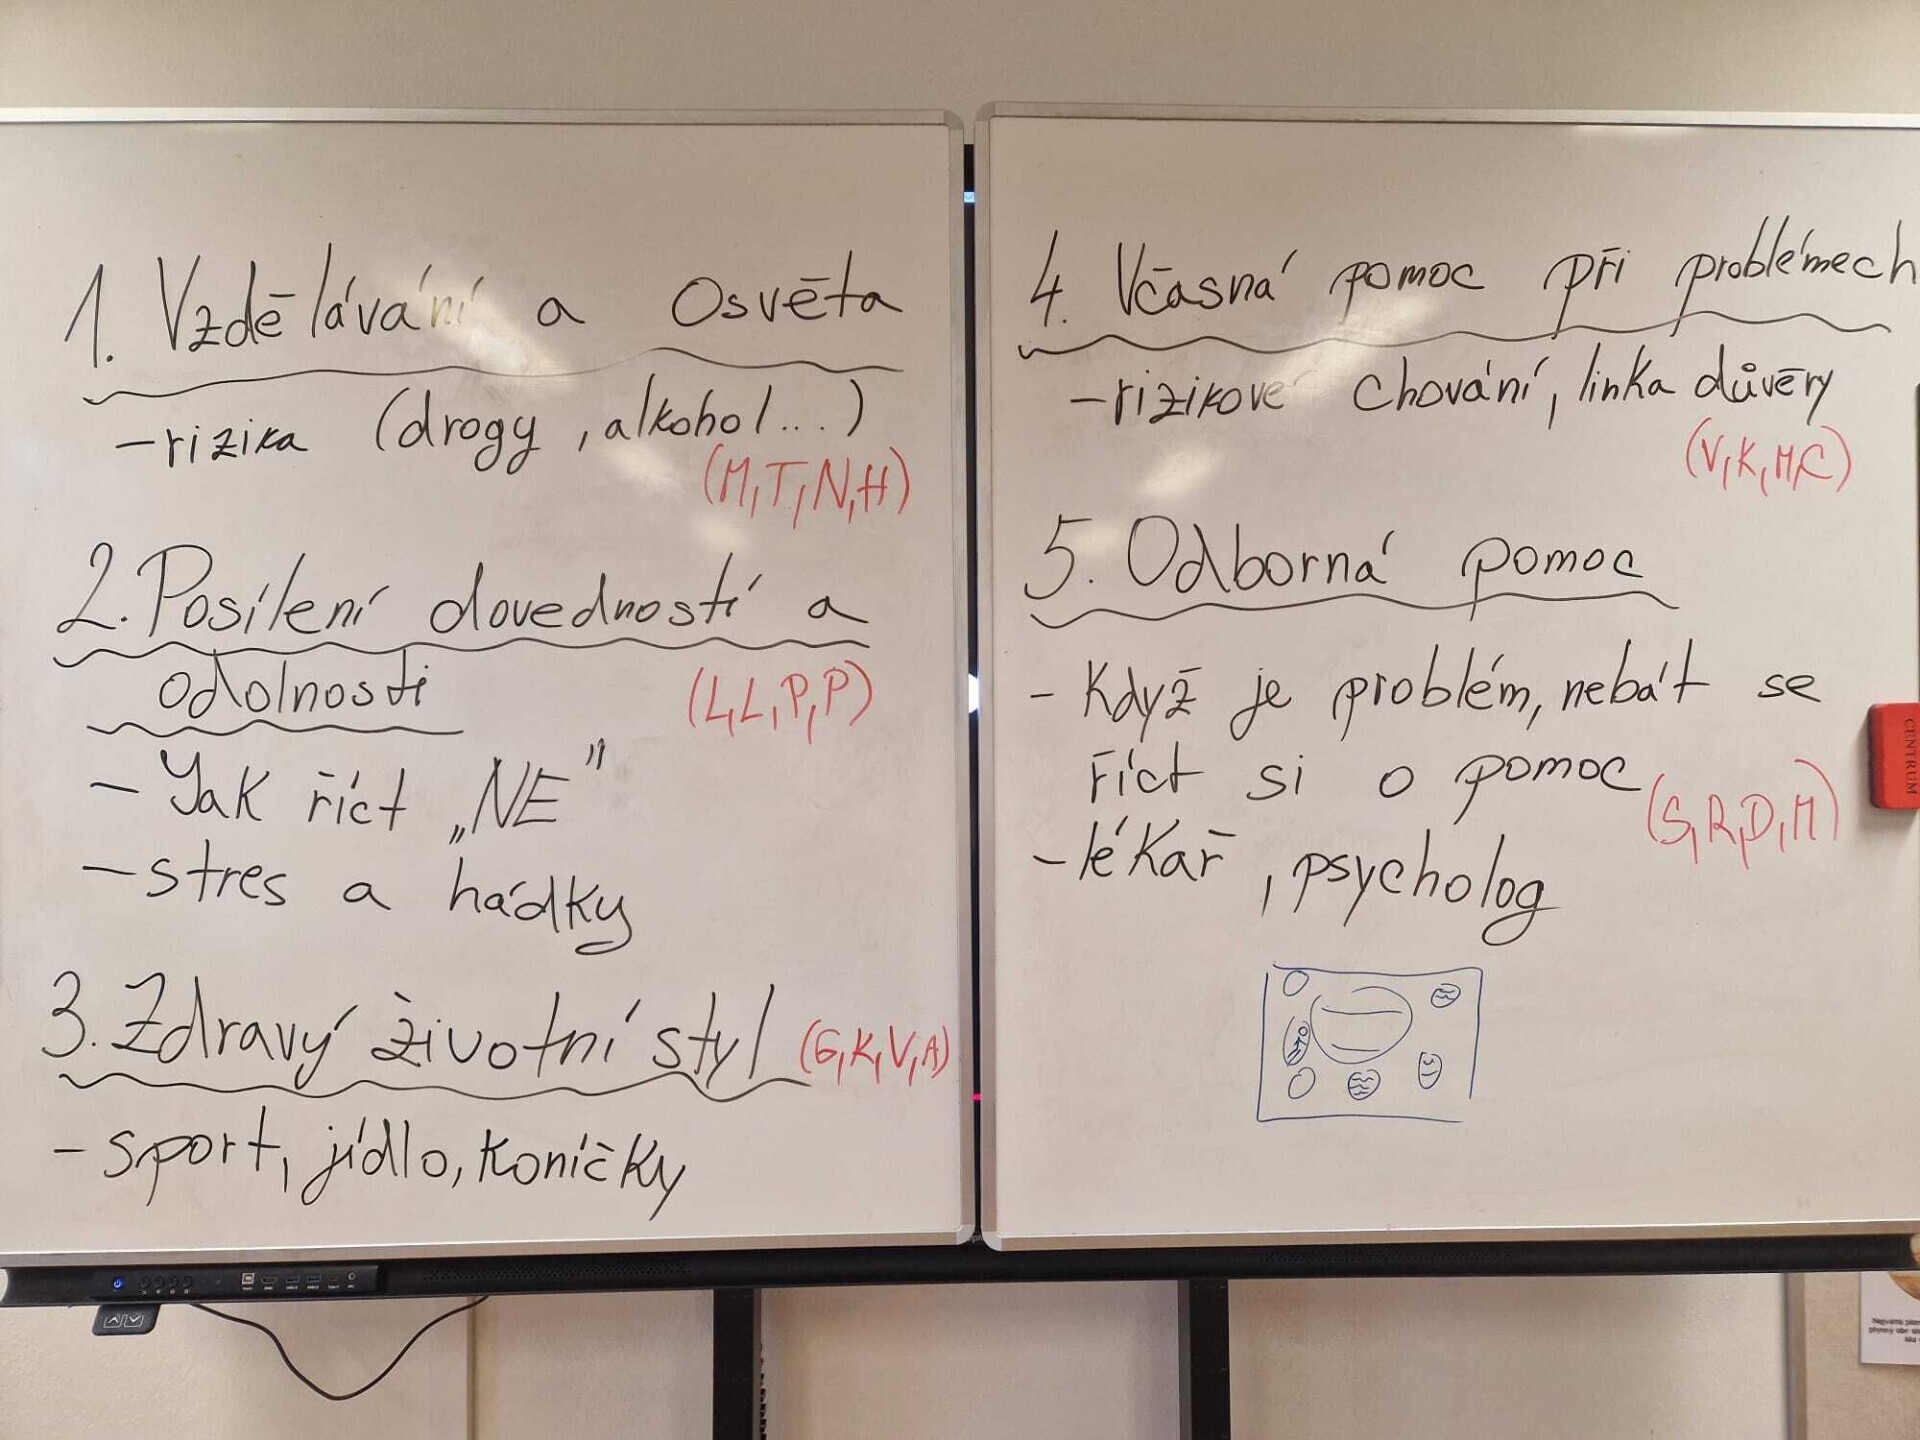 1. Vzdělávání a Osvěta
- rizika (drogy, alkohol...)
(M,T,N,H)
2. Posílení dovedností a
odolnosti
(L,L,P,P)
- Jak říct „NE"
- stres a hádky
3. Zdravý životní styl (G,K,V,A)
- sport, jídlo, koníčky
4. Včasná pomoc při problémech
- rizikové chování, linka důvěry
(V,K,M,C)
5. Odborná pomoc
- Když je problém, nebát se
říct si o pomoc
(S,R,D,M)
- lékař, psycholog
CENTRUM